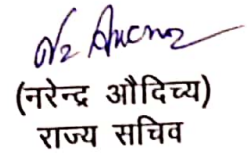 (नरेन्द्र औदिच्य)
राज्य सचिव